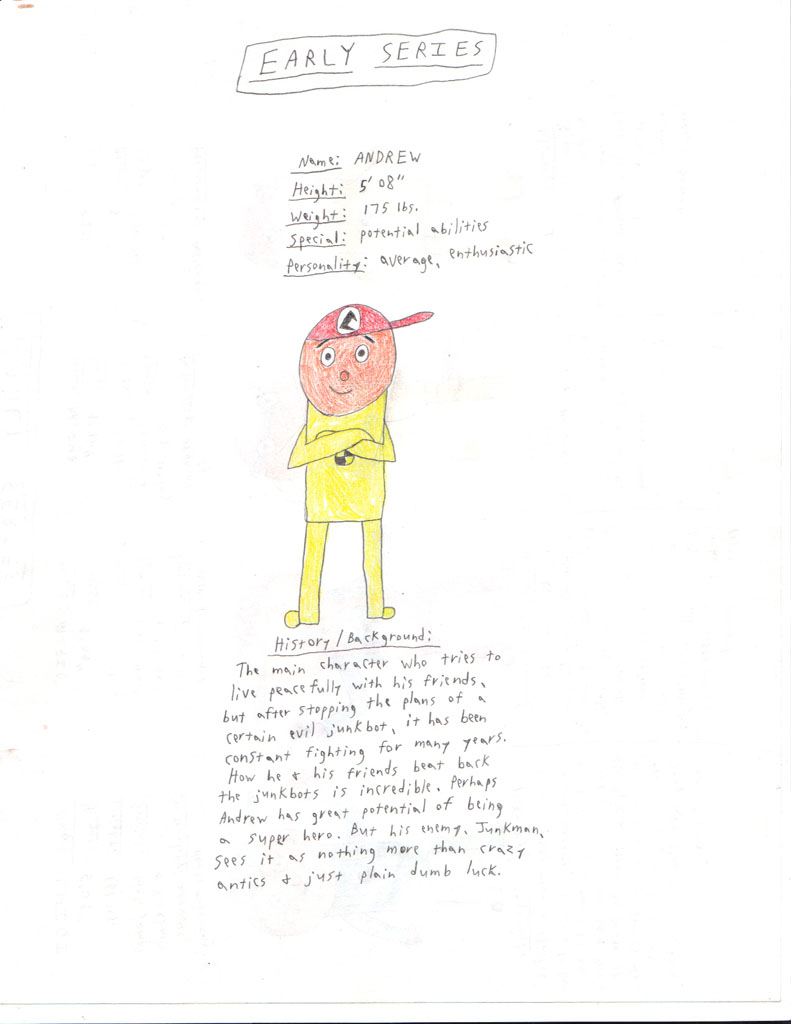 EARLY SERIES
Name: ANDREW
Height: 5' 08"
Weight: 175 lbs.
Special: potential abilities
Personality: average, enthusiastic
History/Background:
The main character who tries to
live peacefully with his friends,
but after stopping the plans of a
certain evil junkbot, it has been
constant fighting for many years.
How he & his friends beat back
the junkbots is incredible. Perhaps
Andrew has great potential of being
a super hero. But his enemy, Junkman,
sees it as nothing more than crazy
antics & just plain dumb luck.